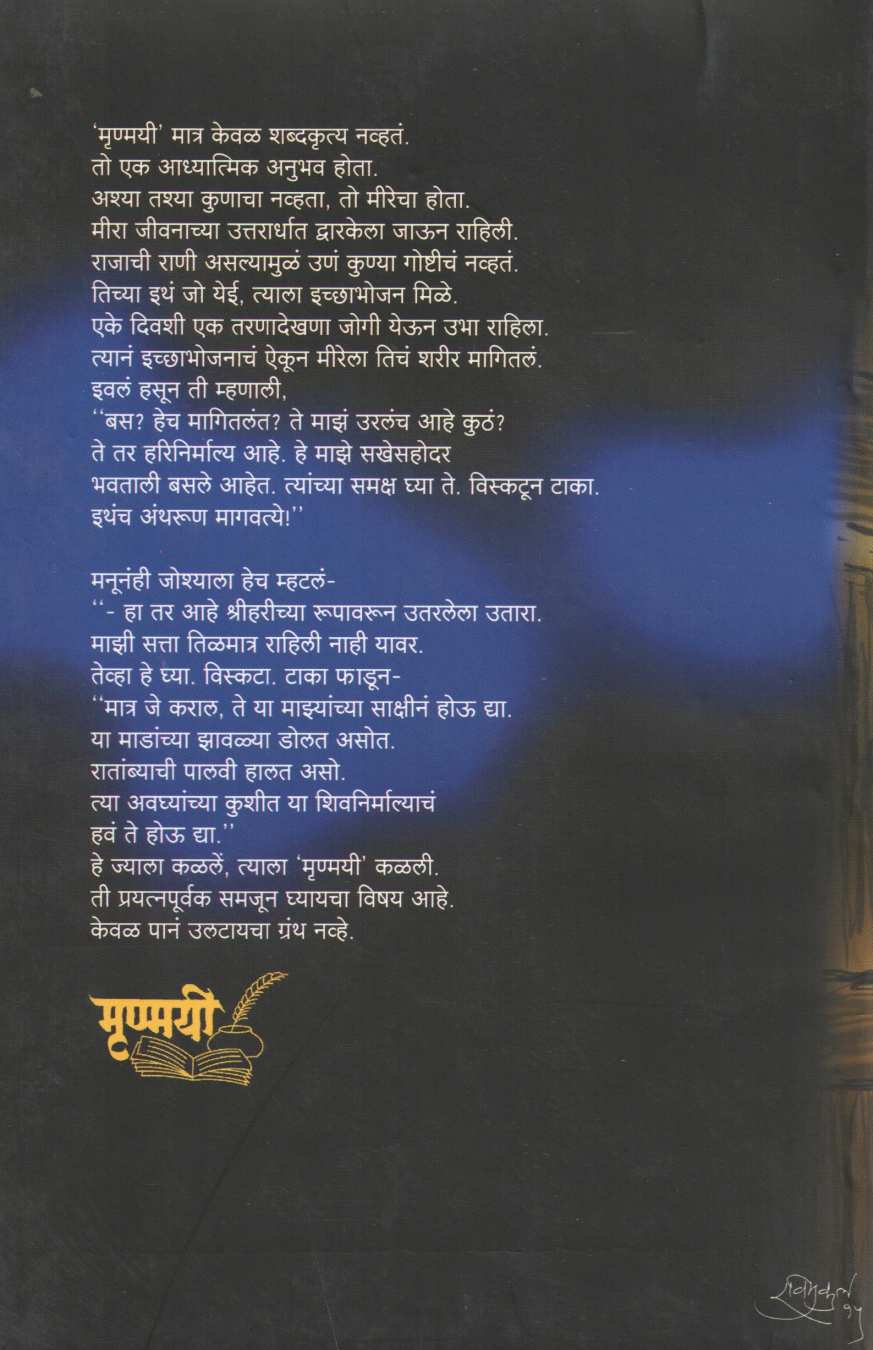 ‘मृण्मयी’ मात्र केवळ शब्दकृत्य नव्हतं.
तो एक आध्यात्मिक अनुभव होता.
अश्या तश्या कुणाचा नव्हता, तो मीरेचा होता.
मीरा जीवनाच्या उत्तरार्धात द्वारकेला जाऊन राहिली.
राजाची राणी असल्यामुळं उणं कुण्या गोष्टीचं नव्हतं.
तिच्या इथं जो येई, त्याला इच्छाभोजन मिळे.
एके दिवशी एक तरणादेखणा जोगी येऊन उभा राहिला.
त्यानं इच्छाभोजनाचं ऐकून मीरेला तिचं शरीर मागितलं.
इवलं हसून ती म्हणाली,
‘‘बस? हेच मागितलंत? ते माझं उरलंच आहे कुठं?
ते तर हरिनिर्माल्य आहे. हे माझे सखेसहोदर
भवताली बसले आहेत. त्यांच्या समक्ष घ्या ते. विस्कटून टाका.
इथंच अंथरूण मागवत्ये!’’
मनूनंही जोश्याला हेच म्हटलं-
‘‘- हा तर आहे श्रीहरीच्या रूपावरून उतरलेला उतारा.
माझी सत्ता तिळमात्र राहिली नाही यावर.
तेव्हा हे घ्या. विस्कटा. टाका फाडून-
‘‘मात्र जे कराल, ते या माझ्यांच्या साक्षीनं होऊ द्या.
या माडांच्या झावळ्या डोलत असोत.
रातांब्याची पालवी हालत असो.
त्या अवघ्यांच्या कुशीत या शिवनिर्माल्याचं
हवं ते होऊ द्या.’’
हे ज्याला कळलें, त्याला ‘मृण्मयी’ कळली.
ती प्रयत्नपूर्वक समजून घ्यायचा विषय आहे.
केवळ पानं उलटायचा ग्रंथ नव्हे.
मृण्मयी
रविमुकुल
९५